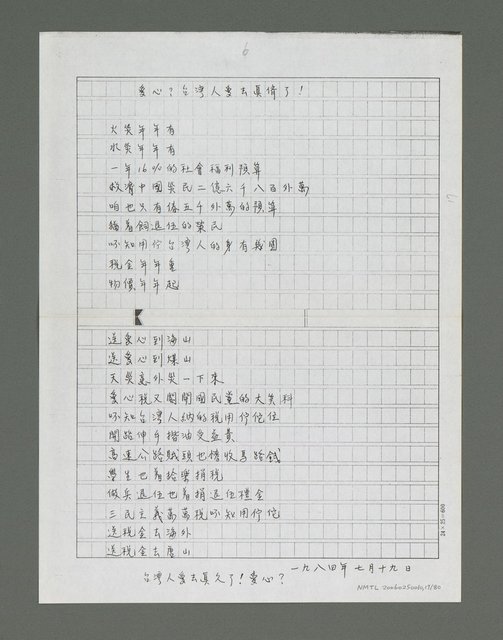 6
愛心？台灣人愛去真倩了！
火災年年有
水災年年有
一年16%的社會福利預算
救濟中國災民二億六千八百外萬
咱也只有億五千外萬的預算
猶著飼退伍的榮民
呣知用佇台灣人的身有幾圓
稅金年年重
物價年年起
送愛心到海山
送愛心到煤山
天災意外災一下來
愛心稅又閣開國民黨的大笑科
呣知台灣人納的稅用佇佗位
開路伸手揩油受益費
高速公路賊頭也愭收馬路錢
學生也著捨樂捐稅
做兵退伍也著捐退伍禮金
三民主義萬萬稅呣知用佇佗
送稅金去海外
送稅金去唐山
一九八四年七月十九日
台灣人愛去真久了！愛心？
24×25=600
NMTL 20060250010,17/80